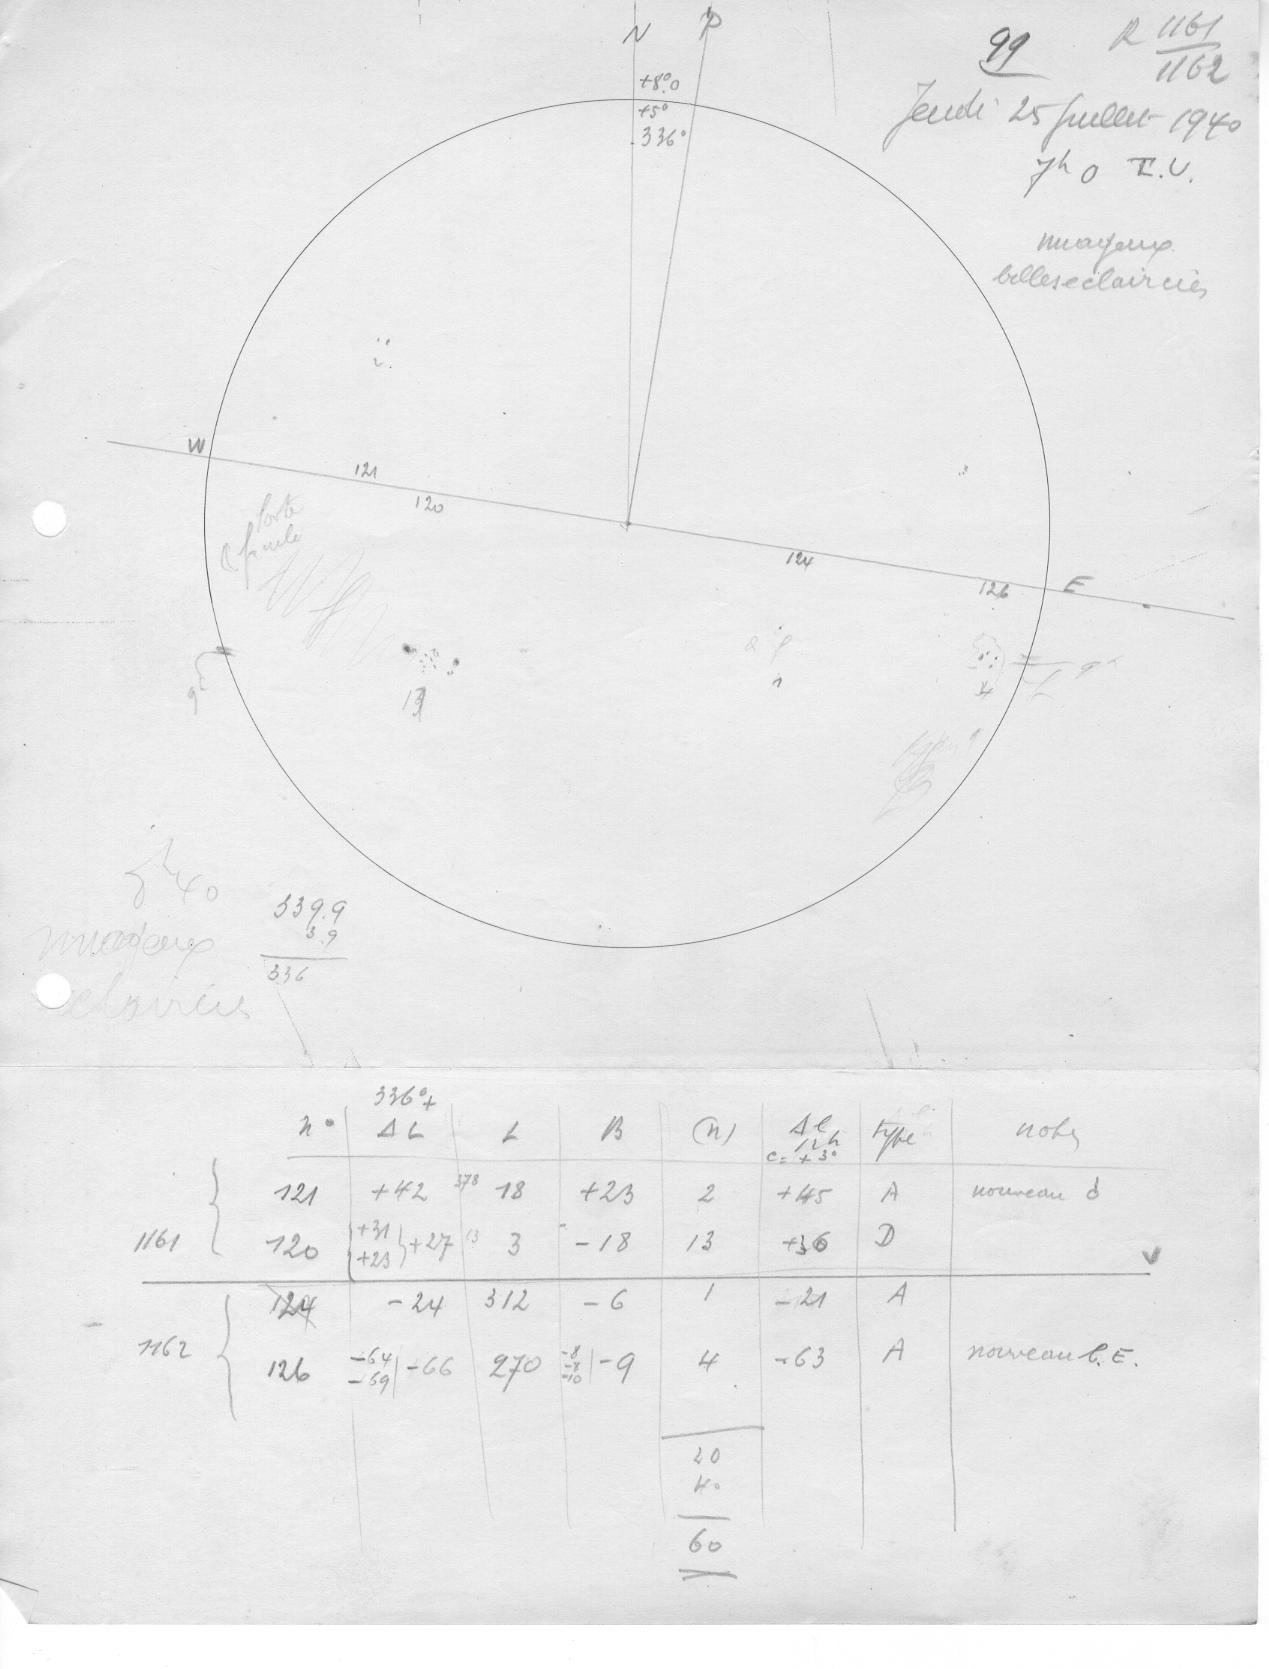 N P
99
R 1161
1162
+8°.0
+5°
336°
Jeudi 25 juillet 1940
7h 0 T.U.
nuageux
belles éclaircies
W
121
120
forte
facule
124
126 E
13
1
4
7h40
nuageux
éclaircies
339.9
3.9
336
336°+
n° ΔL L B (n) Δl type notes
12h
c = +3°
1161
121 +42 378 18 +23 2 +45 A nouveau d
120 +31 +23 +27 13 3 -18 13 +36 D
1162
124 -24 312 -6 1 -21 A
126 -64 -69 -66 270 -8 -8 -10 -9 4 -63 A nouveau b.E.
20
40
60